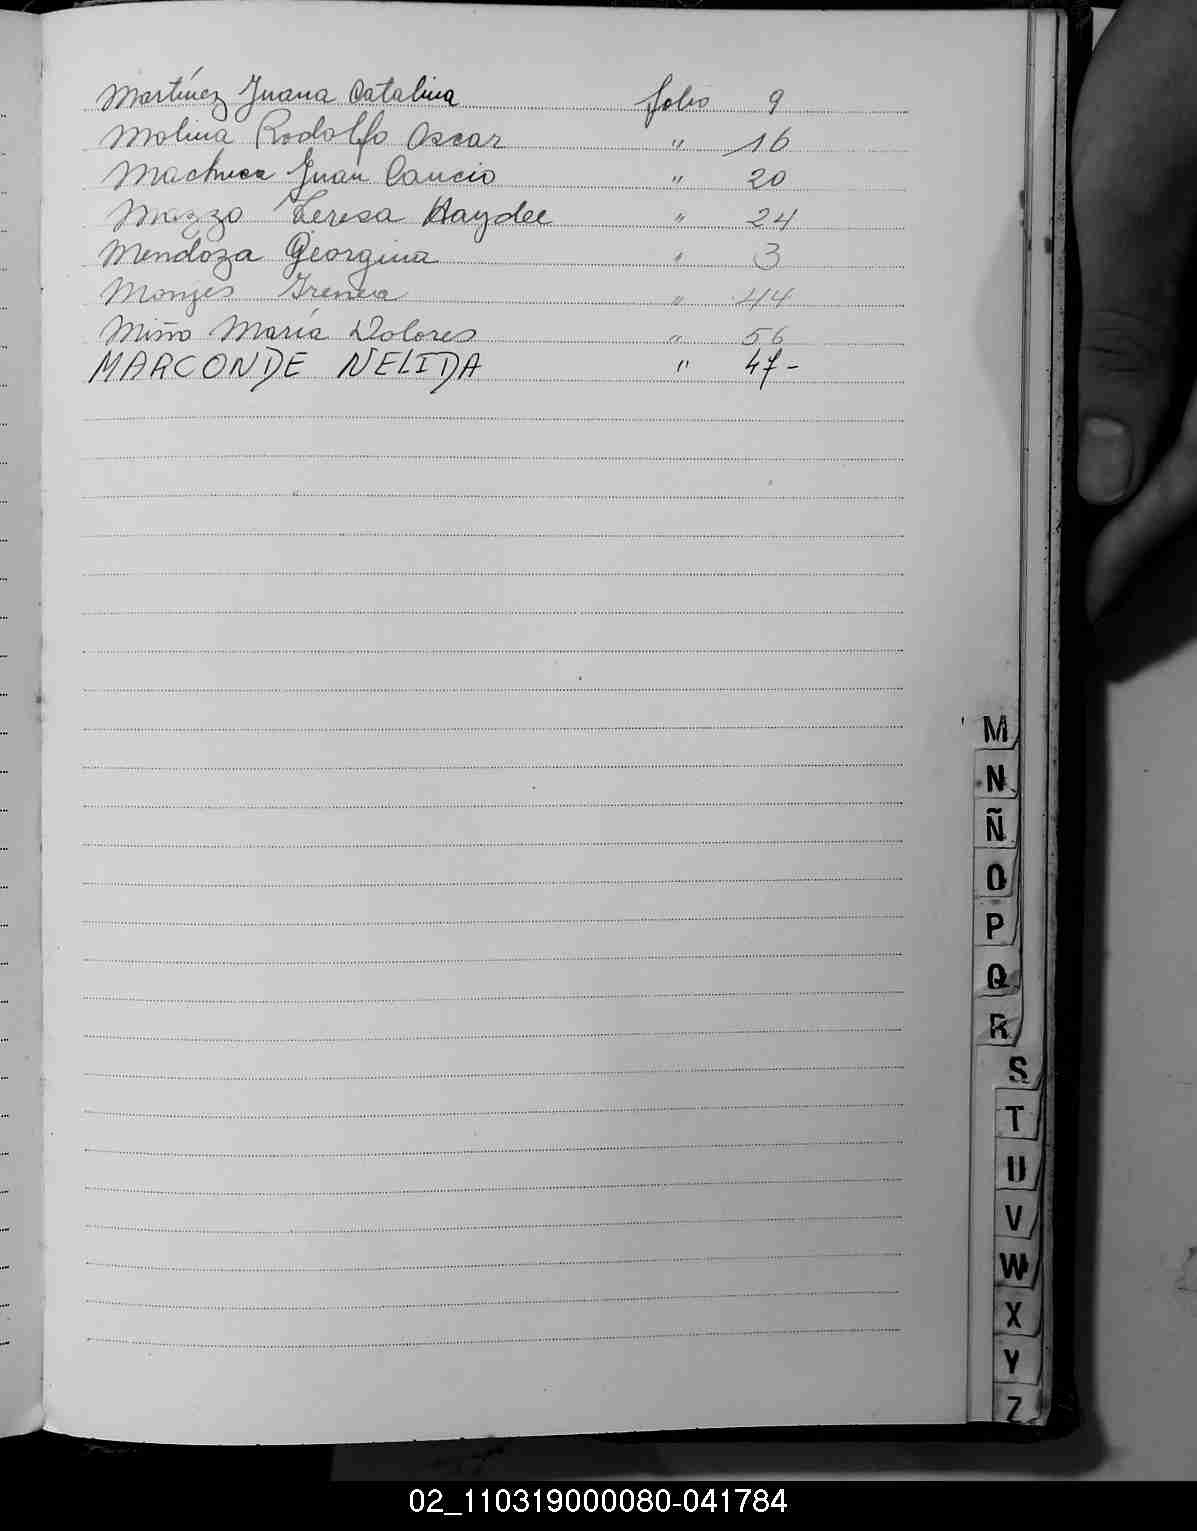 Martínez Juana Catalina folio 9
Molina Rodolfo Oscar " 16
Machuca Juan Cancio " 20
Mazzo Teresa Haydee " 24
Mendoza Georgina " 3
Monjes Irenea " 44
Miño María Dolores " 56
MARCONDE NELIDA " 47-
M
N
Ñ
O
P
Q
R
S
T
U
V
W
X
Y
Z
02_110319000080-041784